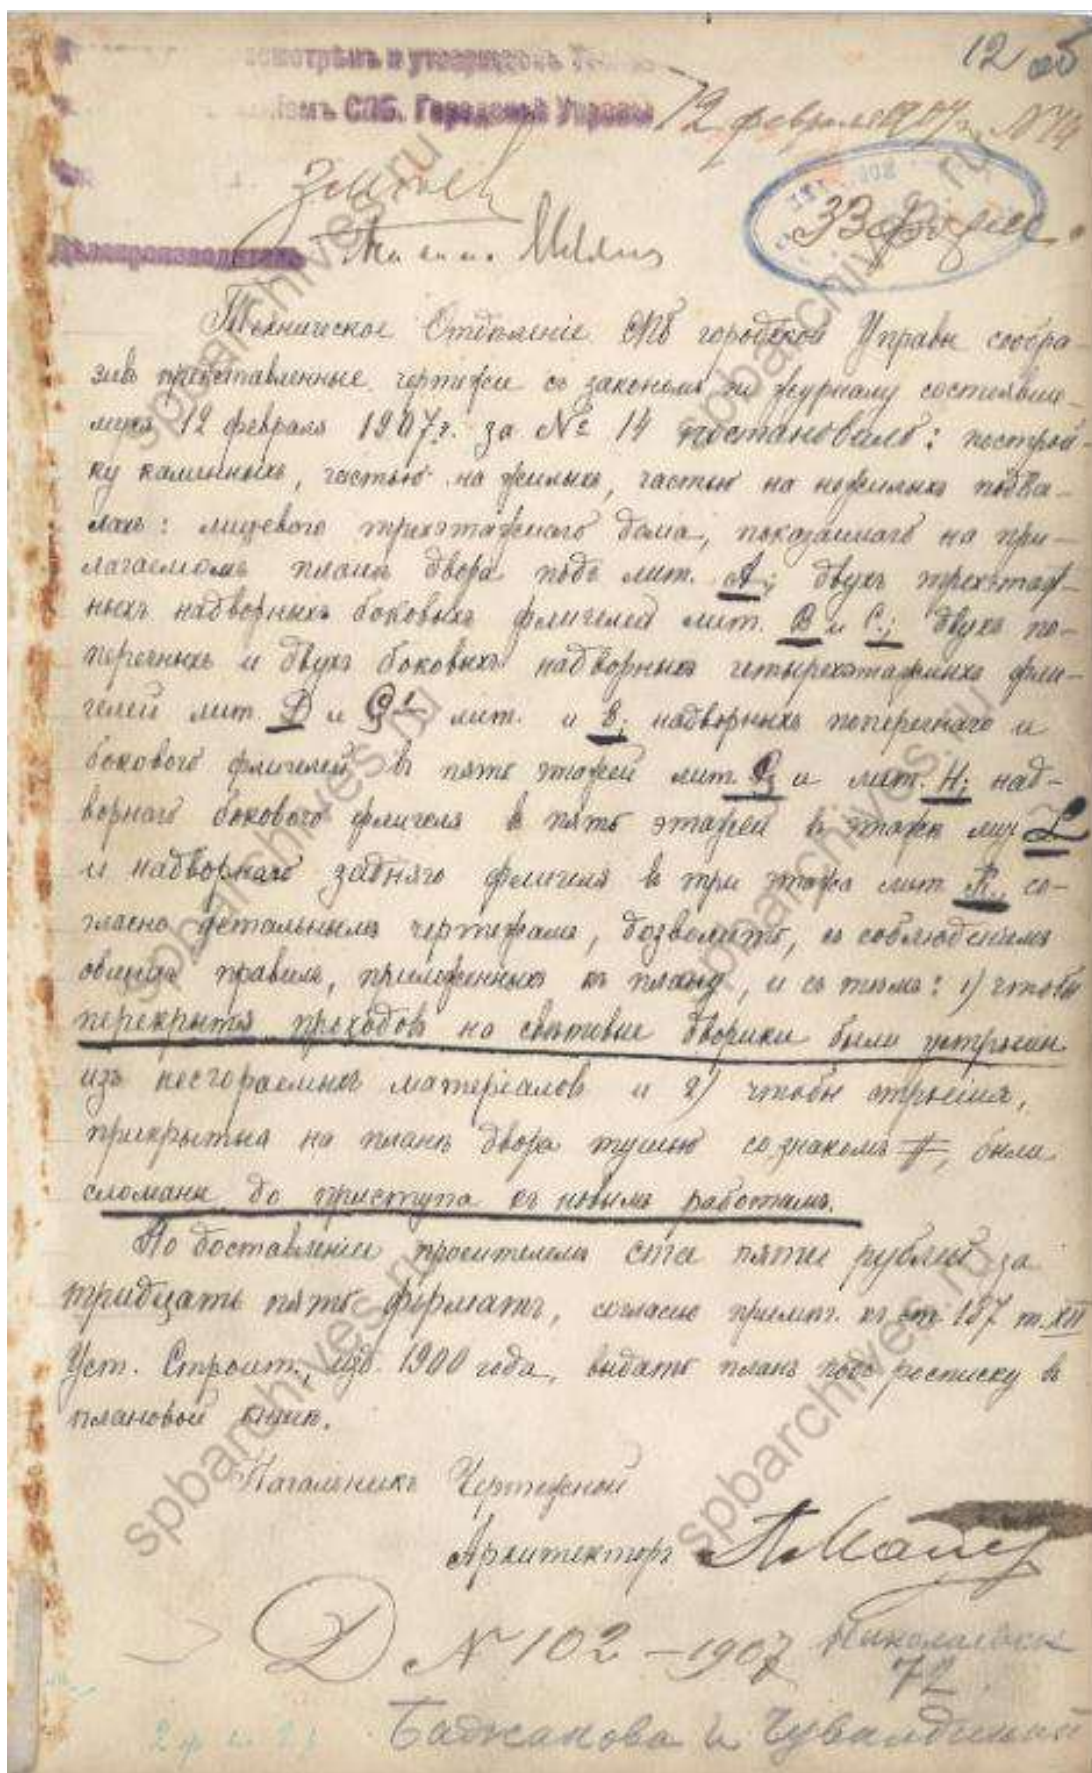 12 об
осмотрѣнъ и утвержденъ Техн
ніемъ СПБ. Городской Управы 12 февраля 1907 г. № 14
33 форм.
Дѣлопроизводитель
Техническое Отдѣленіе СПб городской Управы сообра-
зивъ представленные чертежи съ закономъ по журналу состоявше-
муся 12 февраля 1907 г. за № 14 постановило: построй-
ку каменныхъ, частью на жилыхъ, частью на нежилыхъ подва-
лахъ: лицевого трехэтажнаго дома, показаннаго на при-
лагаемомъ планѣ двора подъ лит. А; двухъ трехэтаж-
ныхъ надворныхъ боковыхъ флигелей лит. В и С.; двухъ по-
перечныхъ и двухъ боковыхъ надворныхъ четырехэтажныхъ фли-
гелей лит. D и лит. и надворныхъ поперечнаго и
бокового флигелей въ пять этажей лит. и лит. Н; над-
ворнаго бокового флигеля въ пять этажей въ этажѣ лит L
и надворнаго задняго флигеля въ три этажа лит. К, со-
гласно детальнымъ чертежамъ, дозволить, съ соблюденіемъ
общихъ правилъ, приложенныхъ къ плану, и съ тѣмъ: 1) чтобы
перекрытія проходовъ на свѣтовые дворики были устроены
изъ несгораемыхъ матеріаловъ и 2) чтобы строенія,
прикрытыя на планѣ двора тушью со знакомъ #, были
сломаны до приступа къ новымъ работамъ.
По доставленіи просителемъ ста пяти рублей за
тридцать пять форматъ, согласно примѣч. къ ст. 187 т. XII
Уст. Строит., изд. 1900 года, выдать планъ подъ росписку въ
плановой книгѣ.
Начальникъ Чертежной
Архитекторъ
D № 102 – 1907 Николаевск
72
Баджанова и Чувалдиной
spbarchives.ru
spbarchives.ru
spbarchives.ru
spbarchives.ru
spbarchives.ru
spbarchives.ru